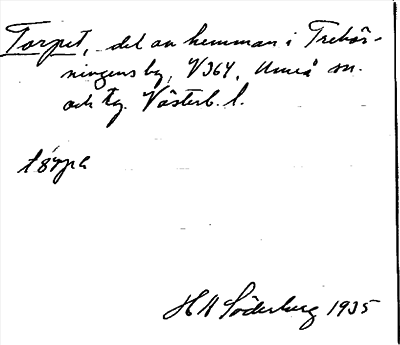 Torpet, del av hemman i Trehör-
ningens by, V364, Umeå sn.
och tg. Västerb. l.
H N Söderberg 1935